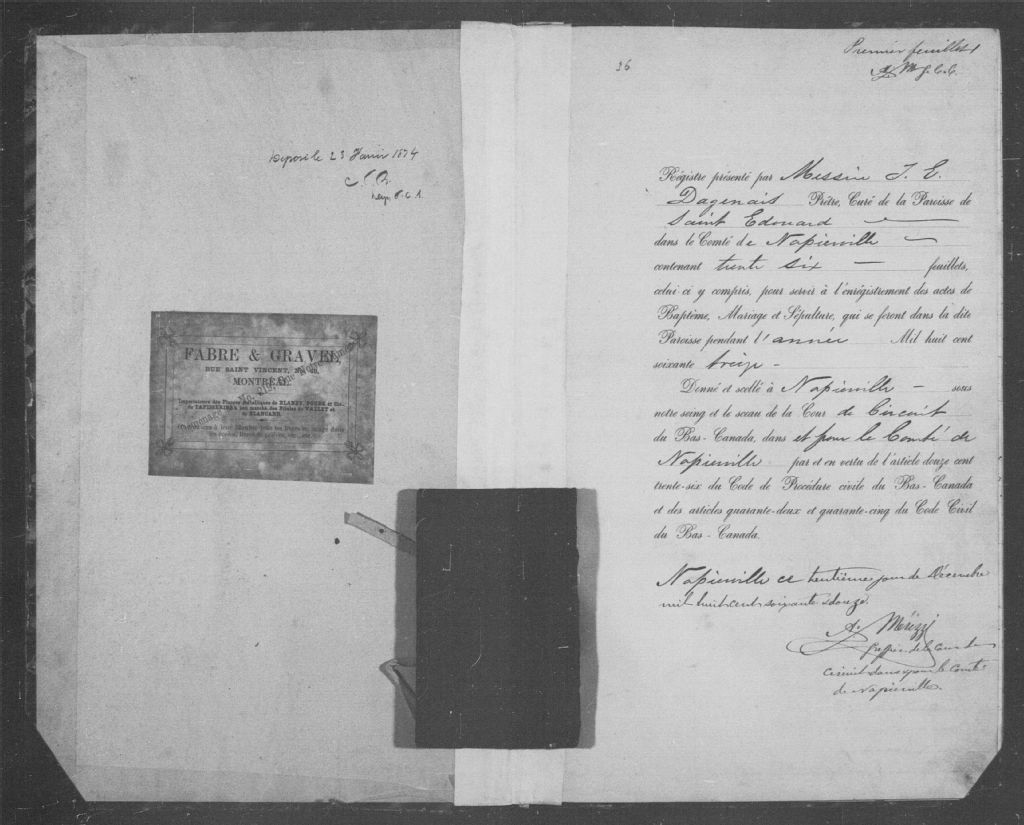 Déposé le 23 Janvier 1874
P.C.S.
FABRE & GRAVEL,
RUE SAINT VINCENT,
MONTREAL.
Importateurs des Plumes Métalliques de BLANZY, POURE et Cie.
de TAPISSERIES bon marché, des Pilules de VALLET et
de BLANCARD.
36
Premier feuillet
A. M. g.C.C.
Régistre présenté par Messire J. E.
Dagenais Prêtre, Curé de la Paroisse de
Saint Edouard
dans le Comté de Napierville
contenant trente six — feuillets,
celui-ci y compris, pour servir à l'enrégistrement des actes de
Baptême, Mariage et Sépulture, qui se feront dans la dite
Paroisse pendant l'année Mil huit cent
soixante treize -
Donné et scellé à Napierville — sous
notre seing et le sceau de la Cour de Circuit
du Bas - Canada, dans et pour le Comté de
Napierville par et en vertu de l'article douze cent
trente-six du Code de Procédure civile du Bas - Canada
et des articles quarante-deux et quarante-cinq du Code Civil
du Bas - Canada.
Napierville ce trentième jour de Décembre
mil huit cent soixante & douze.
A. Merizzi
Greffier de la Cour de
circuit dans & pour le Comté
de Napierville.